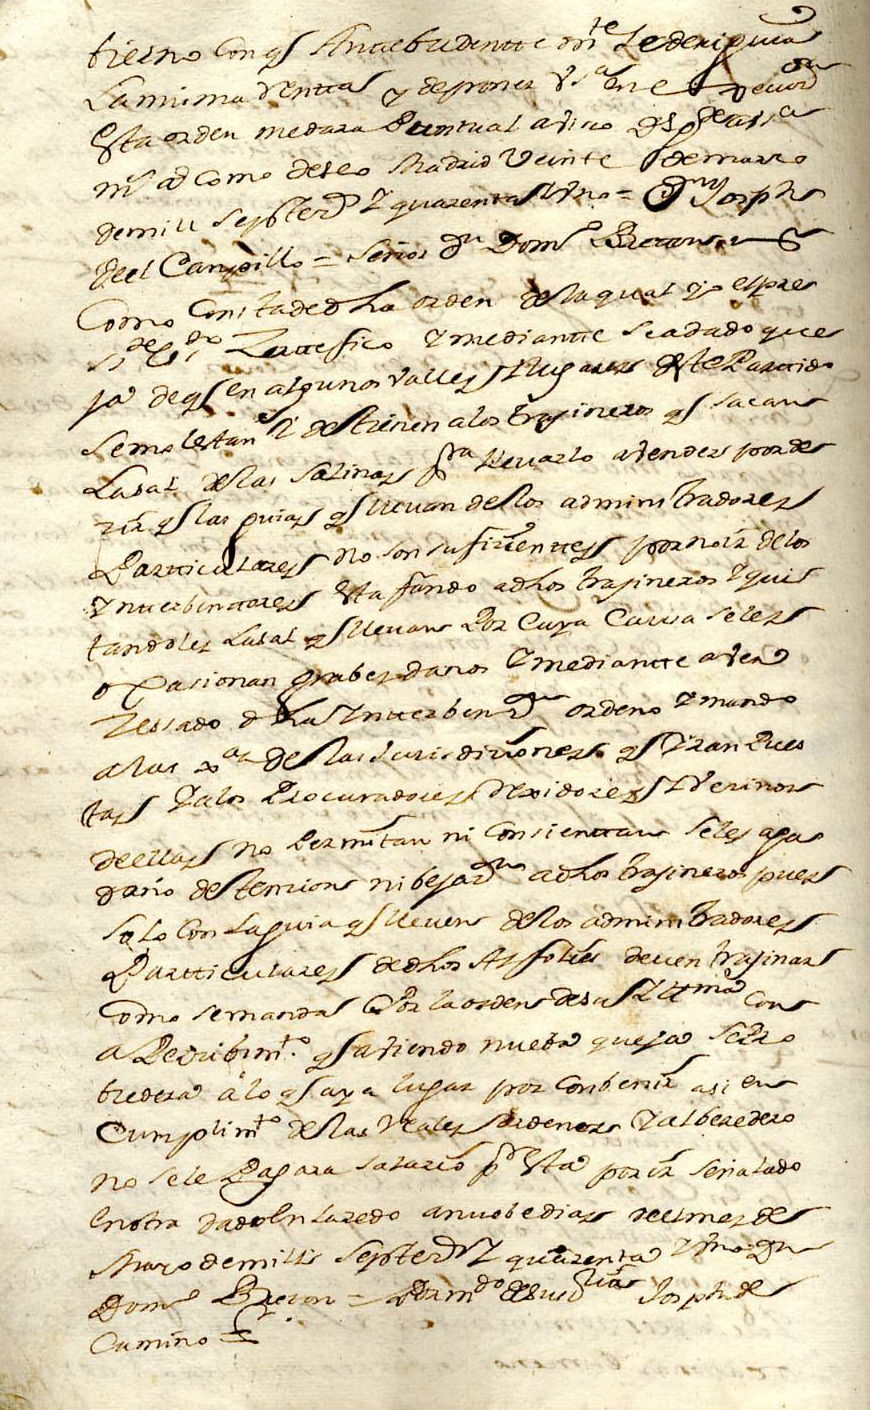 bierno con qe Antecedentte mte se deriguia
La misma Renttas y de poner Vsa en e
Esta orden medara Puntual aviso Ds gde a Vsa
ms as como deseo Madrid Veinte de marzo
de mill septezs y quarenta y Vno = Dn Joseph
deel Campillo = Señor Dn Domo Breton
Como Consta de dha orden de la qual yo el pres
te esno Zerttefico y mediantte se a dado que
ja de qe en algunos valles y lugares deste Parttido
se molestan y destienen a los trajineros qe sacan
La sal de las salinas pra llevarlo a vender por de
zir qe las guias qe llevan de los administradores
Partticulares no son sufizienttes por no ir de los
Ynterbinttores Estafando a dhos trajineros y qui
tandoles La sal qe llevan Por Cuya Causa se les
o casionan grabes danos y mediantte aver
Zessado dha Ynterbenzn ordeno y mando
a las Jas de las Jurisdiziones qe Iran Pues
tas y a los Procuradores Rexidores y Vezinos
de ellas no Permitan ni consienttan se les aga
daño destenzion ni bejazn a dhos trajineros pues
solo Con La guia qe lleven de los administradores
Partticulares de dhos Alfolies deven trajinar
Como se manda Por la orden de su Yttma Con
a Perzibimto qe aviendo nueba queja se Pro
zedera a lo qe aya lugar por Conbenir asi en
Cumplimto de las Reales ordenes y al beredero
no se le Pagara salario pr Esta por ir señalado
En otra dado En Laredo a nuebe dias deel mes de
Mayo de mill septezs y quarenta y Vno Dn
Domo Breton = Por mdo de su Sria Joseph de
Camino =